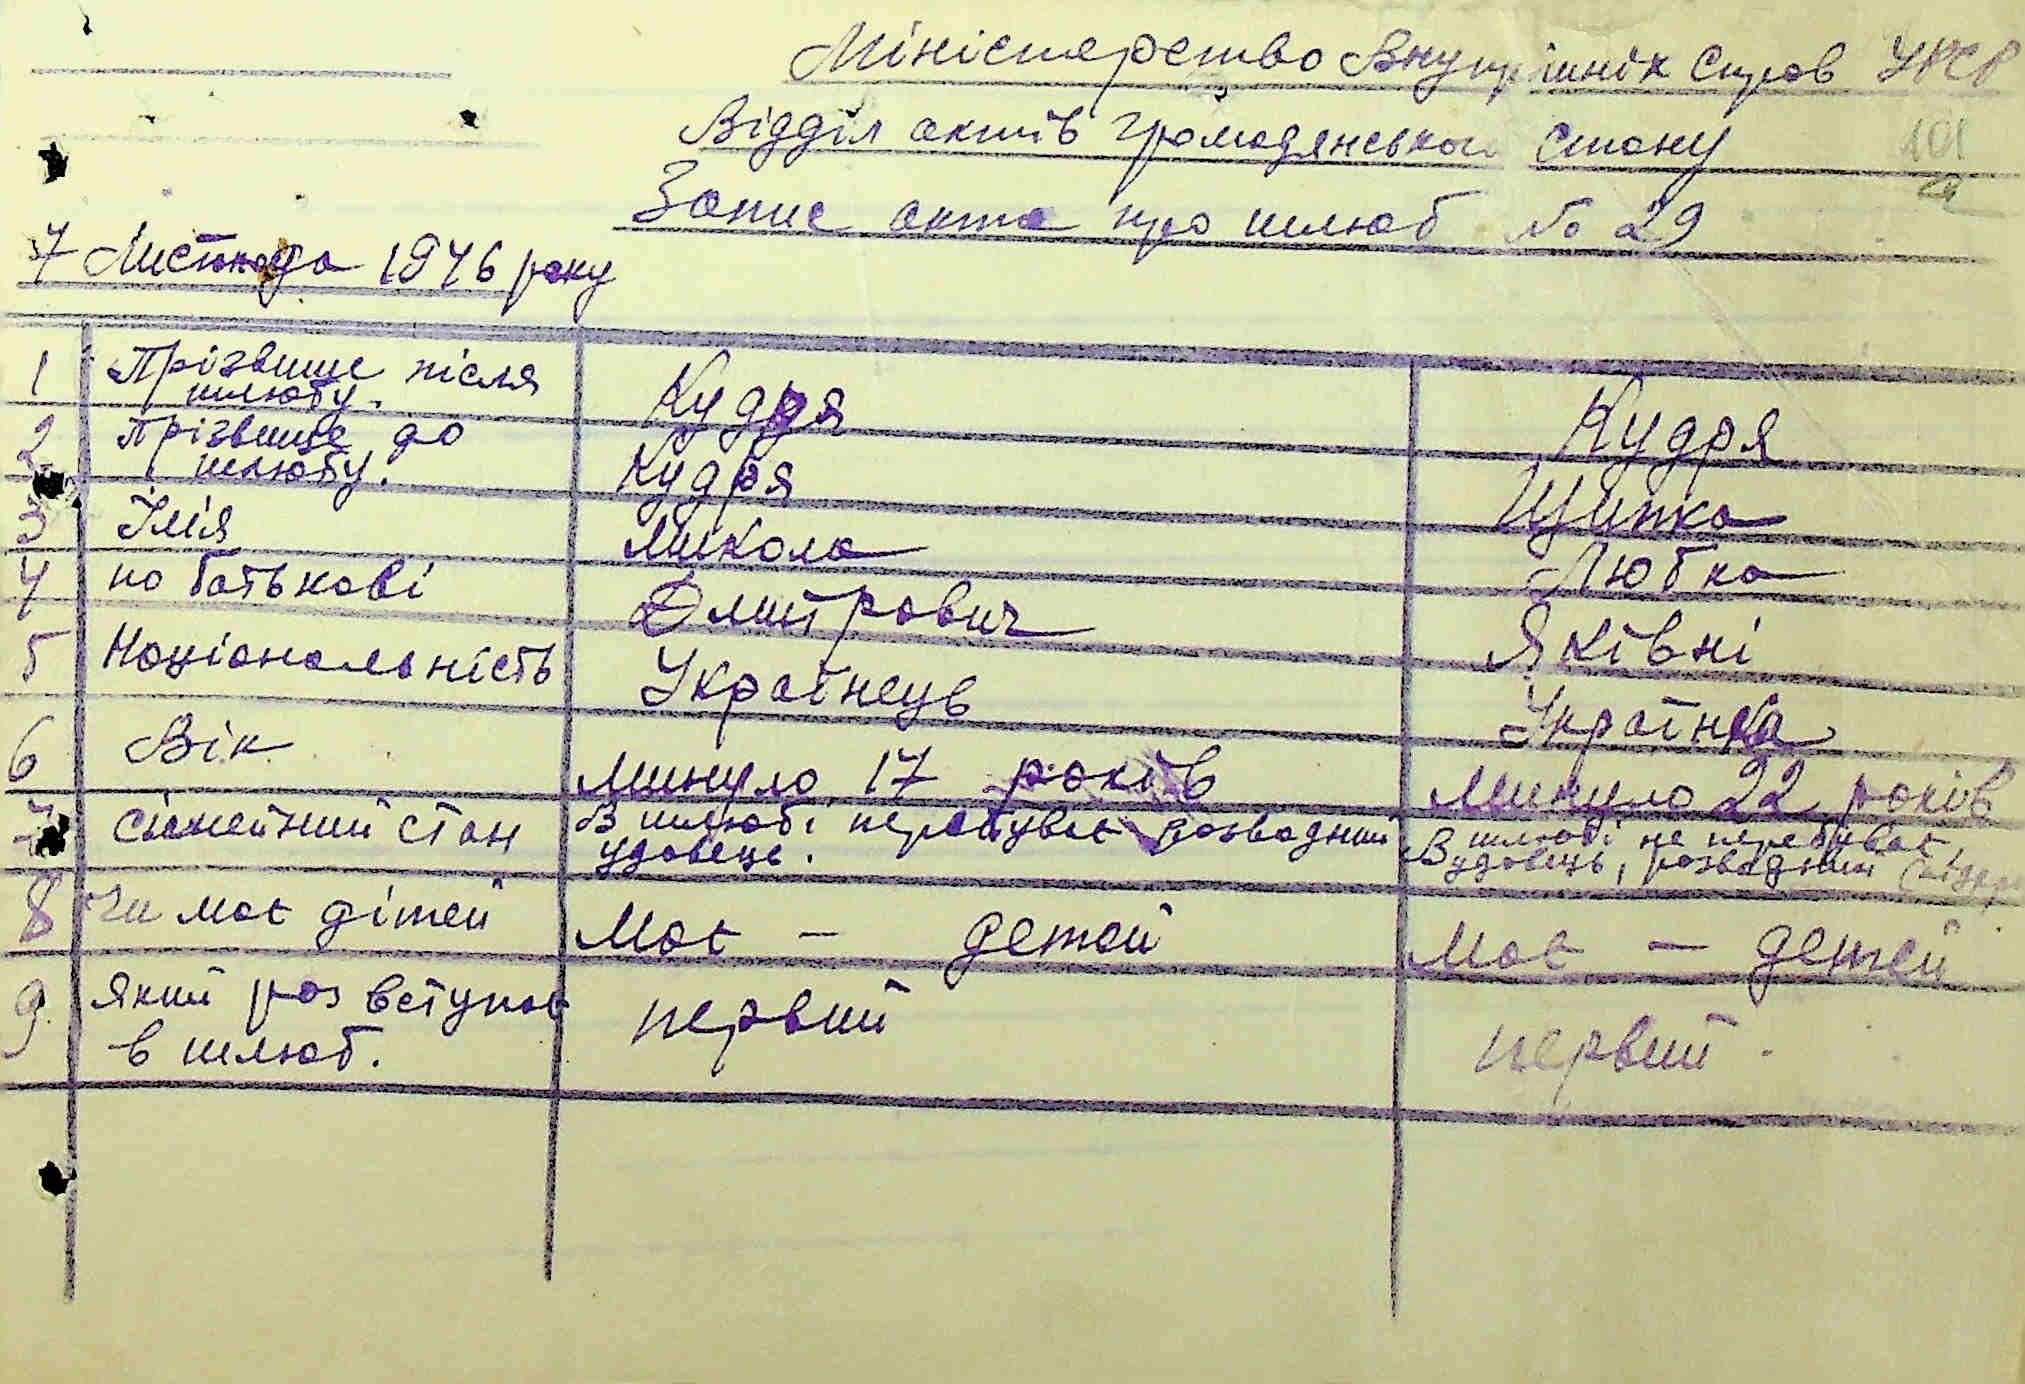 Міністерство Внутрішніх Справ УРСР
Відділ актів громадянського стану
101
Запис акта про шлюб № 29
7 Листопада 1946 року
1 Прізвище після шлюбу. Кудря Кудря
2 Прізвище до шлюбу. Кудря Щипка
3 Імія Микола Любка
4 по батькові Дмитрович Яківні
5 Національність Українець Українка
6 Вік Минуло 17 років Минуло 22 років
7 Сімейний стан В шлюбі перебуває розводний В шлюбі не перебуває
удовець. удовець, розводний
8 Чи має дітей Має — детей Має — детей
9 Який раз вступає первий первий.
в шлюб.